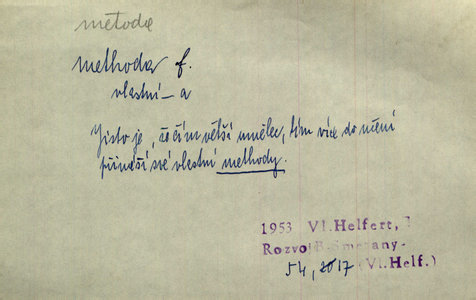 metoda
methoda f.
vlastní – a
Jisto je, že čím větší umělec, tím více do učení
přináší své vlastní methody.
1953 Vl. Helfert,
Rozvoj B. Smetany-
54, 2017 (Vl. Helf.)